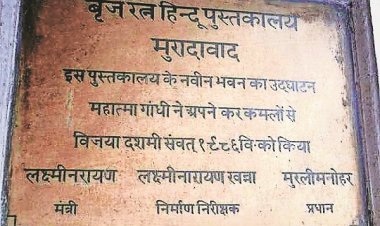 बृज रत्न हिन्दू पुस्तकालय
मुरादावाद
इस पुस्तकालय के नवीन भवन का उदघाटन
महात्मा गांधी ने अपने कर कमलों से
विजया दशमी संवत् १९८६ वि॰ को किया
लक्ष्मीनरायण लक्ष्मीनारायण खन्ना मुरलीमनोहर
मंत्री निर्माण निरीक्षक प्रधान